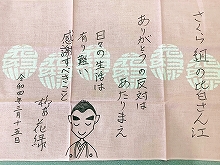 さくら組の皆さん江
ありがとうの反対は
あたりまえ
日々の生活は
有り難い、
感謝すべきこと
令和四年三月五日
花緑